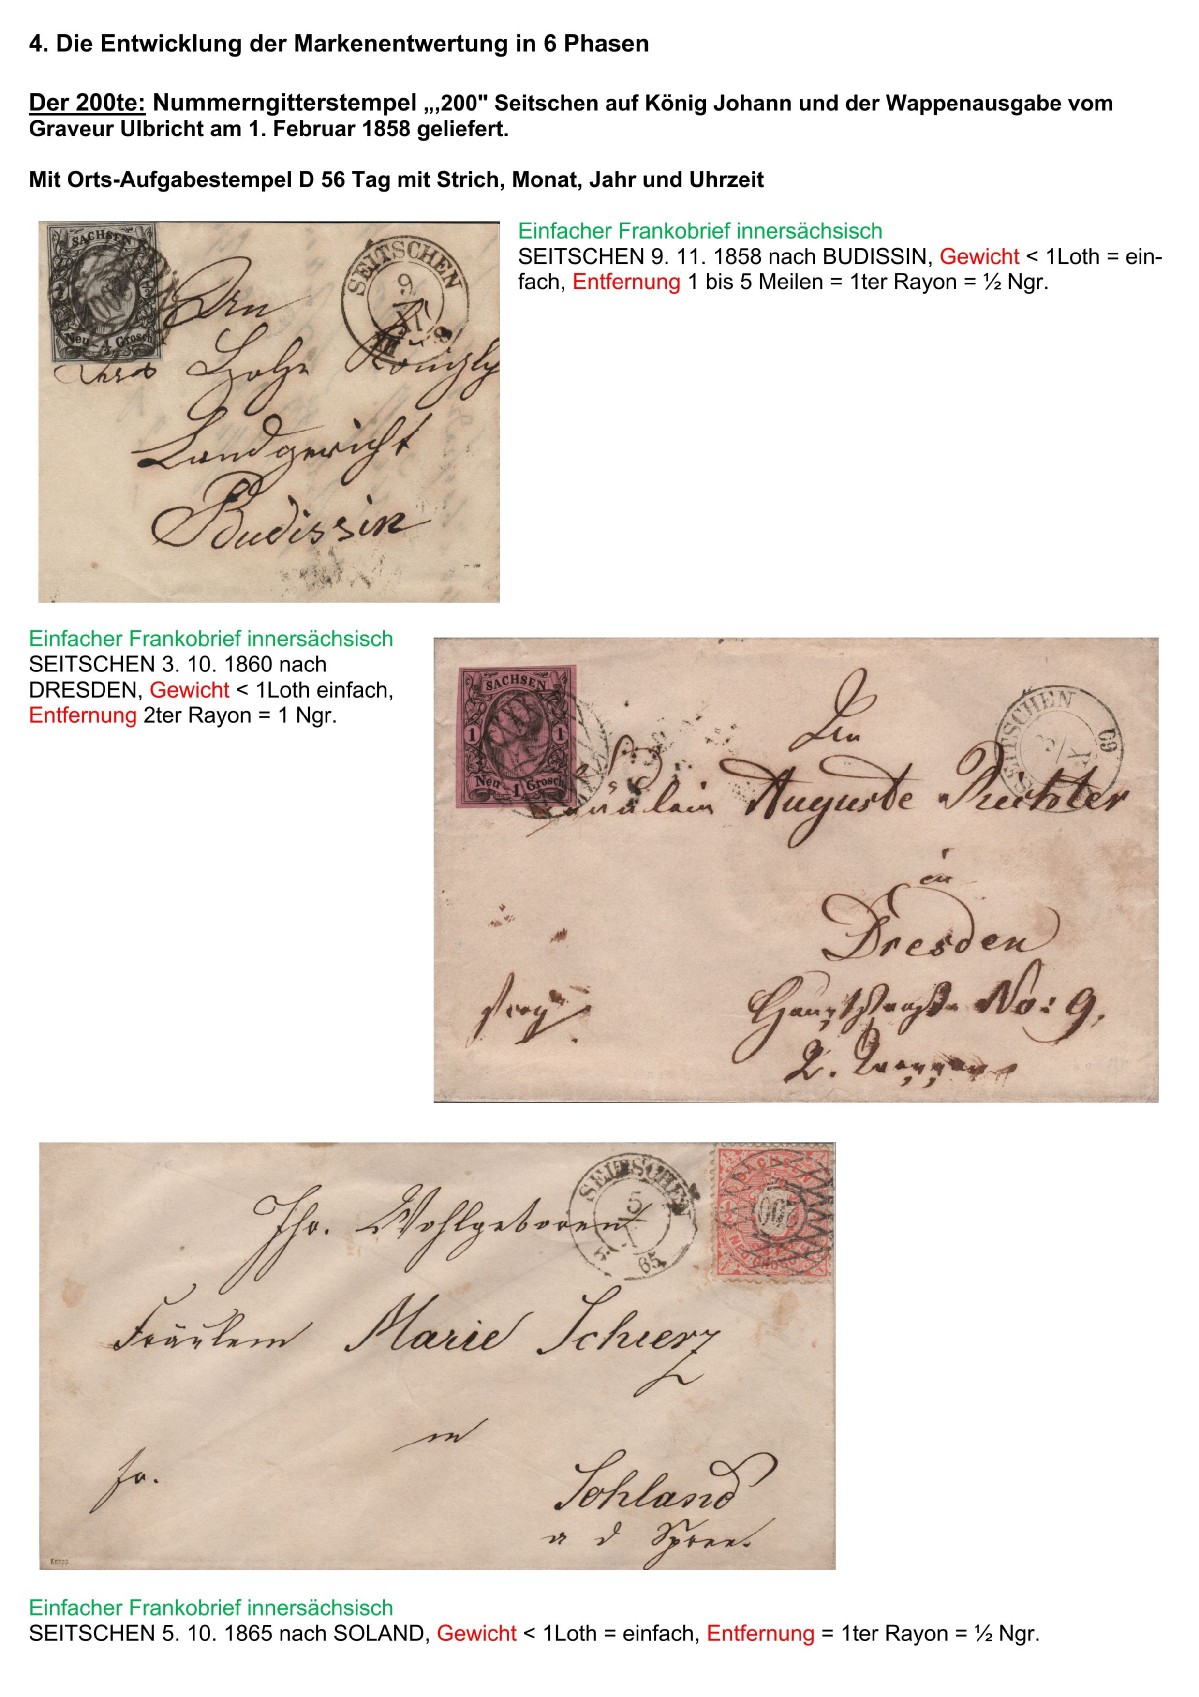 4. Die Entwicklung der Markenentwertung in 6 Phasen
Der 200te: Nummerngitterstempel „,200" Seitschen auf König Johann und der Wappenausgabe vom
Graveur Ulbricht am 1. Februar 1858 geliefert.
Mit Orts-Aufgabestempel D 56 Tag mit Strich, Monat, Jahr und Uhrzeit
Einfacher Frankobrief innersächsisch
SEITSCHEN 9. 11. 1858 nach BUDISSIN, Gewicht < 1Loth = ein-
fach, Entfernung 1 bis 5 Meilen = 1ter Rayon = ½ Ngr.
SACHSEN
200
Neu ½ Grosch
SEITSCHEN
9
XI
An
Landgericht
Budissin
Einfacher Frankobrief innersächsisch
SEITSCHEN 3. 10. 1860 nach
DRESDEN, Gewicht < 1Loth einfach,
Entfernung 2ter Rayon = 1 Ngr.
SACHSEN
1 1
Neu 1 Grosch
SEITSCHEN
3
X
60
Fräulein Auguste Richter
in
Dresden
Hauptstraße No: 9.
SEITSCHEN
5
X
65
SACHSEN
200
NEUGROSCHEN
Ihr. Wohlgeboren
Fräulein Marie Schierz
in
fr.
Sohland
a d Spree.
Einfacher Frankobrief innersächsisch
SEITSCHEN 5. 10. 1865 nach SOLAND, Gewicht < 1Loth = einfach, Entfernung = 1ter Rayon = ½ Ngr.